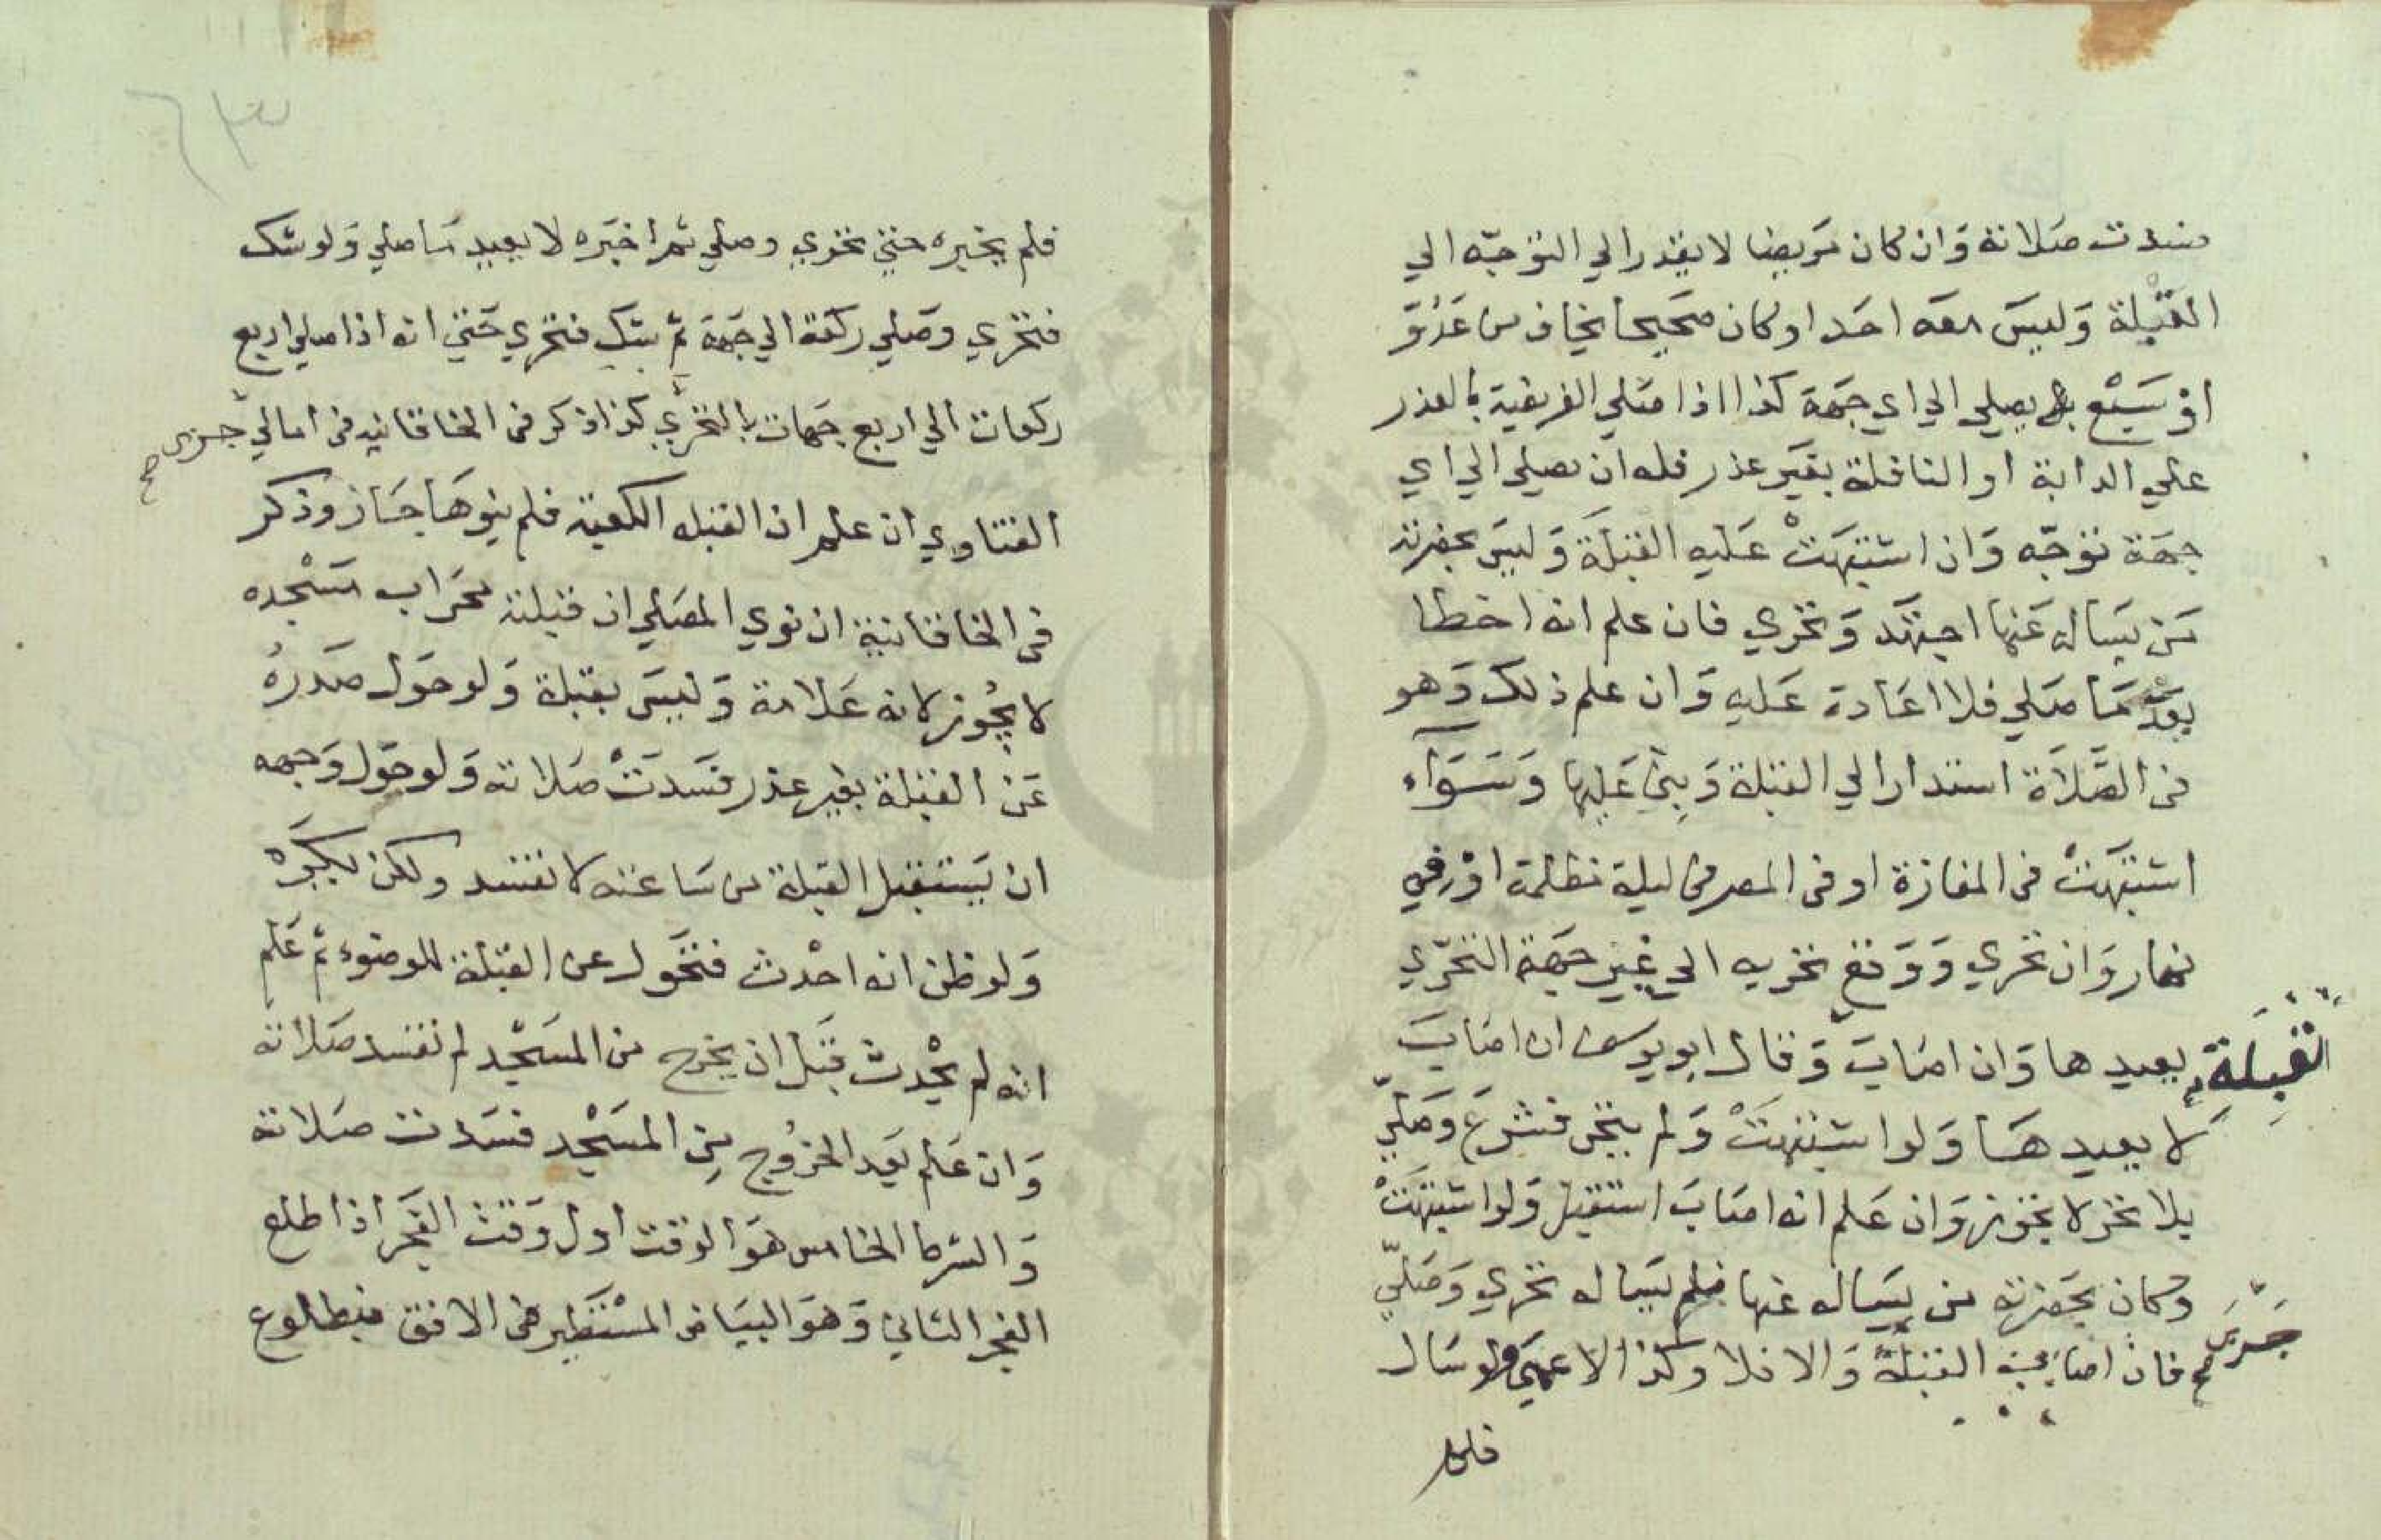 فسدت صلاته وان كان مريضا لا يقدر الي التوجه الي
القبلة وليس معه احد او كان صحيحا يخاف من عدو
او سبع يصلي الي اي جهة كذا اذا صلي الفريضة بالعذر
علي الدابة او النافلة بغير عذر فله ان يصلي الي اي
جهة توجه وان اشتبهت عليه القبلة وليس بحضرته
من يسال عنها اجتهد وتحري فان علم انه اخطا
بعد ما صلي فلا اعادة عليه وان علم ذلك وهو
في الصلاة استدار الي القبلة وبني عليها وسواء
اشتبهت في المفازة او في المصر في ليلة مظلمة او في
نهار وان تحري ووقع تحريه الي غير جهة التحري
القبلة
يعيدها وان اصاب وقال ابو يوسف ان اصاب
لا يعيدها ولو اشتبهت ولم يتحر فشرع وصلي
بلا تحر لا يجوز وان علم انه اصاب استقبل ولو اشتبهت
وكان بحضرته من يساله عنها فلم يساله تحري وصلي
فان اصاب القبلة والا فلا وكذا الاعمي ولو سال
فلم
٦٣
فلم يخبره حتي تحري وصلي ثم اخبره لا يعيد ما صلي ولو شك
فتحري وصلي ركعة الي جهة ثم شك فتحري حتي انه اذا صلي اربع
ركعات الي اربع جهات بالتحري كذا ذكر في الخاقانيه في امالي
صح
الفتاوي ان علم ان القبله الكعبة فلم ينوها جاز وذكر
في الخاقانية ان نوي المصلي ان قبلته محراب مسجده
لا يجوز لانه علامة وليس بقبلة ولو حول صدره
عن القبلة بغير عذر فسدت صلاته ولو حول وجهه
ان يستقبل القبلة من ساعته لا تفسد ولكن يكره
ولو ظن انه احدث فتحول عن القبلة للوضوء ثم علم
انه لم يحدث قبل ان يخرج من المسجد لم تفسد صلاته
وان علم بعد الخروج من المسجد فسدت صلاته
والشرط الخامس هو الوقت اول وقت الفجر اذا طلع
الفجر الثاني وهو البياض المستطير في الافق فبطلوع